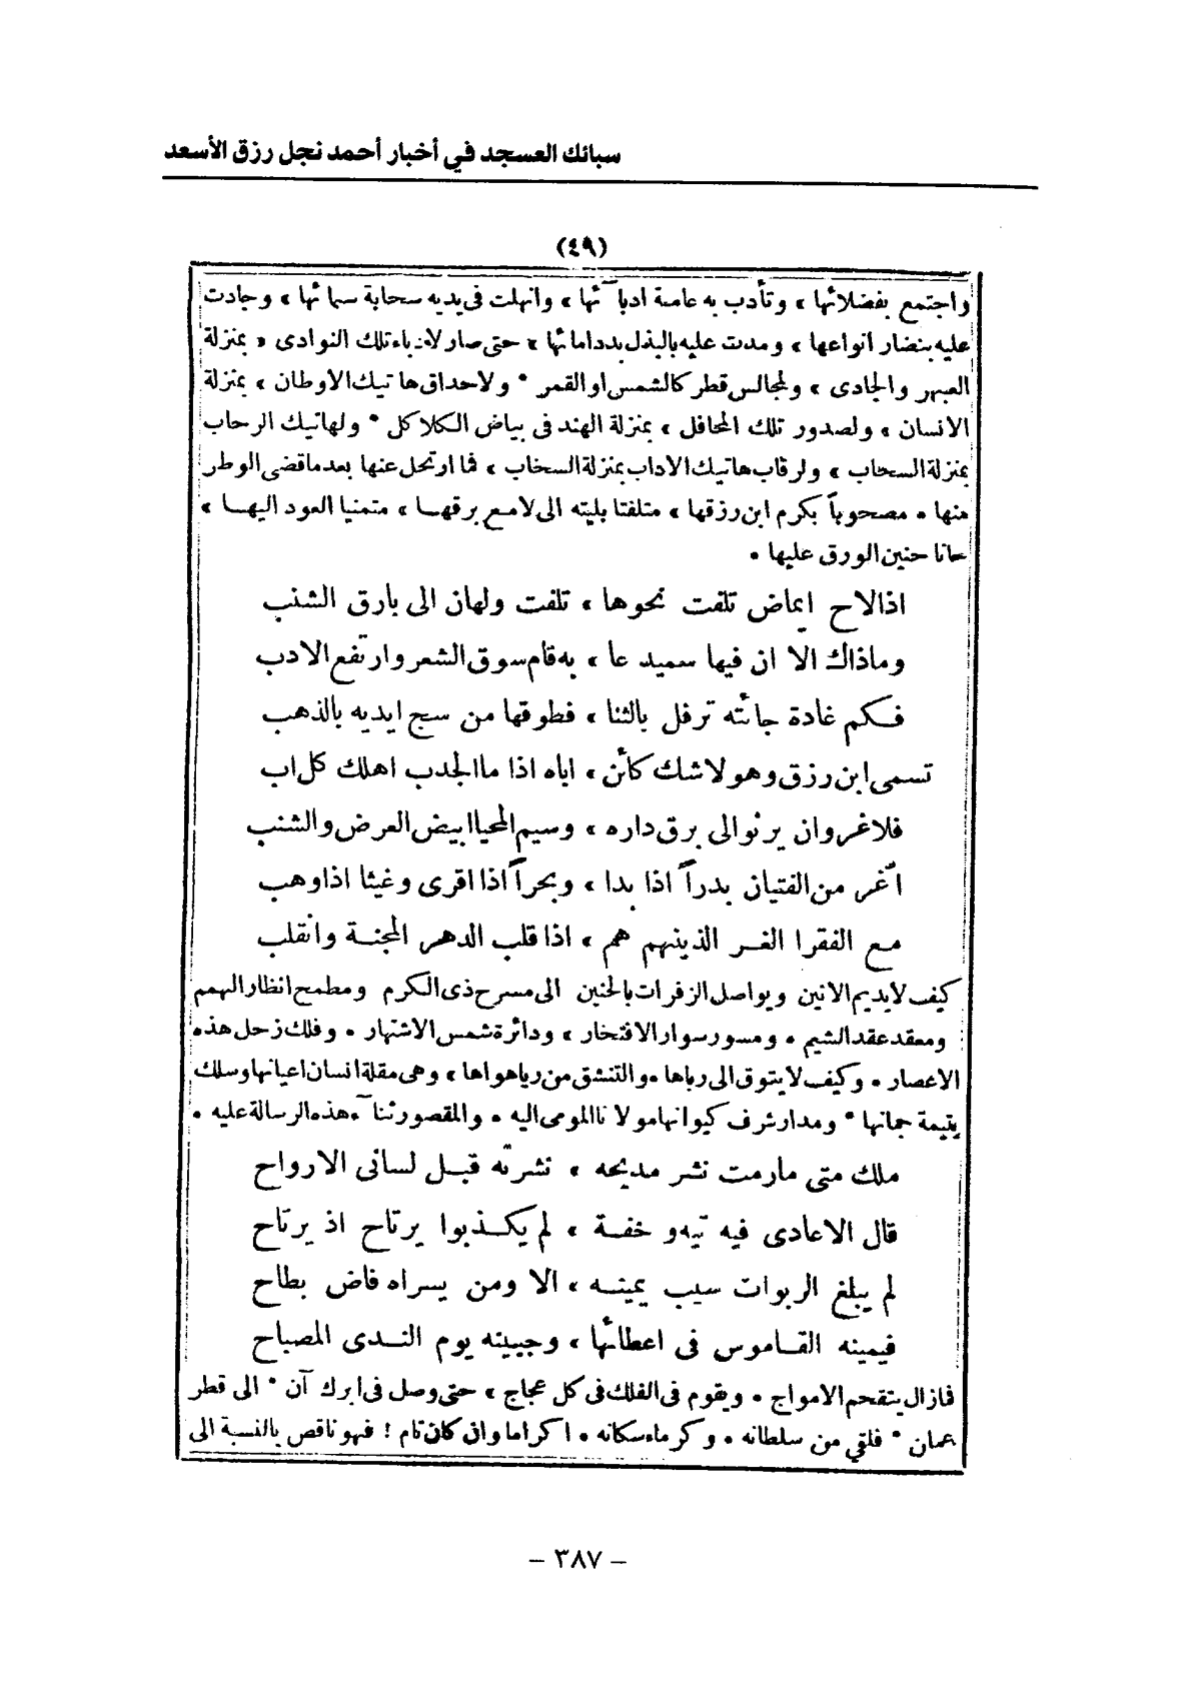 سبائك العسجد في أخبار أحمد نجل رزق الأسعد
(٤٩)
واجتمع بفضلائها * وتأدب به عامة ادبآئها * وانهلت في يديه سحابة سمائها * وجادت
عليه بنضار انواعها * ومدت عليه بالبذل بددامائها * حتى صار لادباء تلك النوادى * بمنزلة
العبهر والجادى * ولمجالس قطر كالشمس او القمر * ولاحداق هاتيك الاوطان * بمنزلة
الانسان * ولصدور تلك المحافل * بمنزلة الهند فى بياض الكلاكل * ولهاتيك الرحاب
بمنزلة السحاب * ولرقاب هاتيك الاداب بمنزلة السخاب * فما ارتحل عنها بعد ما قضى الوطر
منها * مصحوباً بكرم ابن رزقها * متلفتا بليته الى لامع برقهـا * متمنيا العود اليهـا *
حانا حنين الورق عليها *
اذا لاح ايماض تلفت نحوها * تلفت ولهان الى بارق الشنب
وماذاك الا ان فيها سميدعا * به قام سوق الشعر وارتفع الادب
فكم غادة جائته ترفل بالثنا * فطوقها من سج ايديه بالذهب
تسمى ابن رزق وهو لاشك كأئن * اباه اذا ما الجدب اهلك كل اب
فلا غروان يرنو الى برق داره * وسيم المحيا ابيض العرض والشنب
اغر من الفتيان بدراً اذا بدا * وبحراً اذا اقرى وغيثا اذا وهب
مع الفقرا الغر الذينهم هم * اذا قلب الدهر المجنة وانقلب
كيف لا يديم الانين ويواصل الزفرات بالحنين الى مسرح ذى الكرم ومطمح انظار الهمم
ومعقد عقد الشيم * ومسور سوار الافتخار * ودائرة شمس الاشتهار * وفلك زحل هذه
الاعصار * وكيف لا يتوق الى رباها * والتنشق من رياهواها * وهى مقلة انسان اعيانها وسلك
يتيمة جمانها * ومدار شرف كيوانها مولانا المومى اليه * والمقصور ثنآء هذه الرسالة عليه *
ملك متى مارمت نشر مديحه * نشرته قبل لسانى الارواح
قال الاعادى فيه تيه و خفة * لم يكذبوا يرتاح اذ يرتاح
لم يبلغ الربوات سيب يمينه * الا ومن يسراه فاض بطاح
فيمينه القاموس فى اعطائها * وجبينه يوم الندى المصباح
فازال يتقحم الامواج * ويقوم فى الفلك فى كل عجاج * حتى وصل فى ابرك آن * الى قطر
عمان * فلقي من سلطانه * وكرماء سكانه * اكراما وان كان تام ! فهو ناقص بالنسبة الى
– ٣٨٧ –